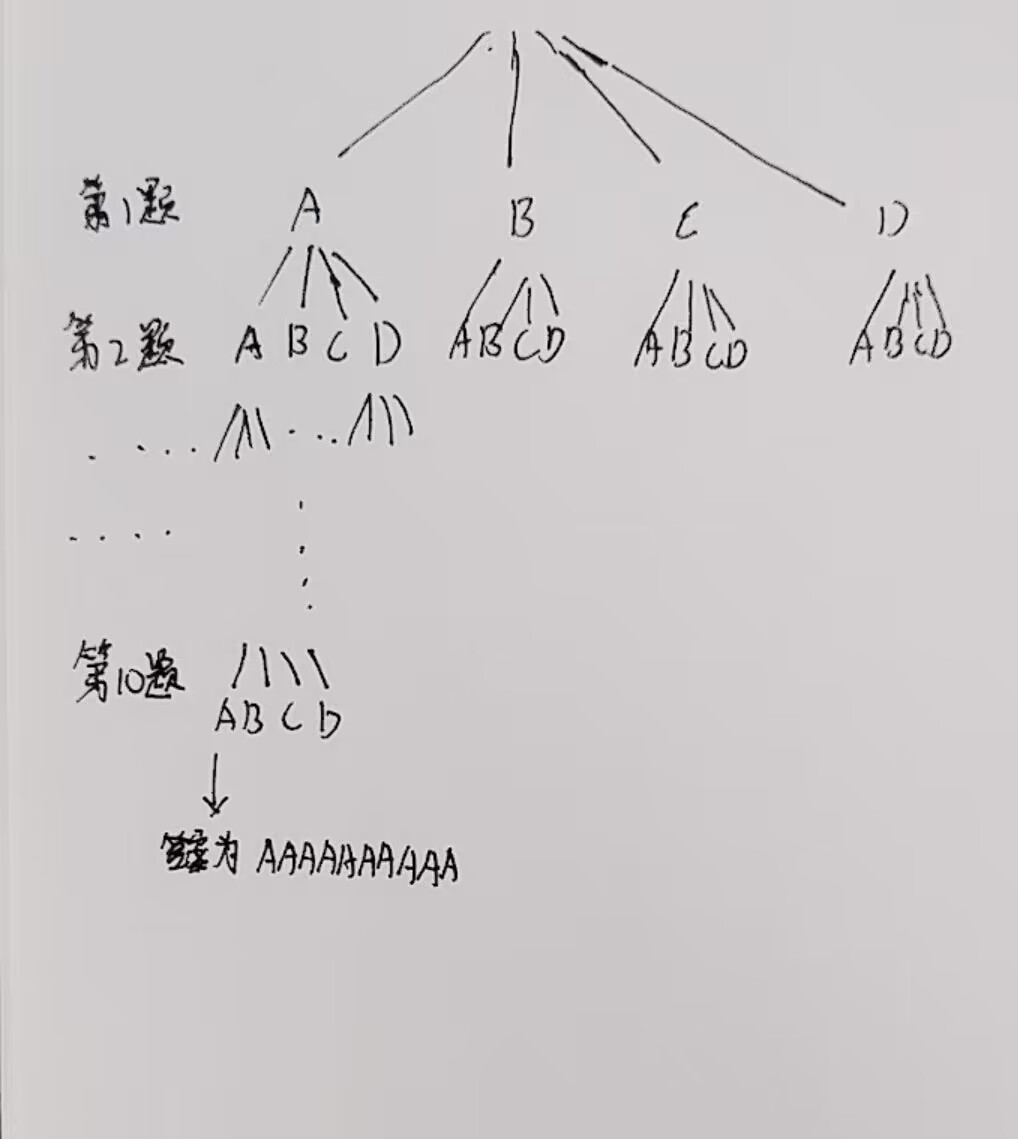 第1题 A B C D
第2题 A B C D A B C D A B C D A B C D
.... ....
....
第10题
A B C D
答案为 AAAAAAAAAA